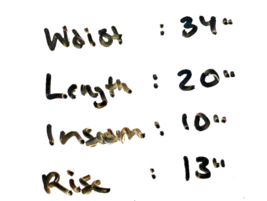 Waist : 34"
Length : 20"
Inseam : 10"
Rise : 13"